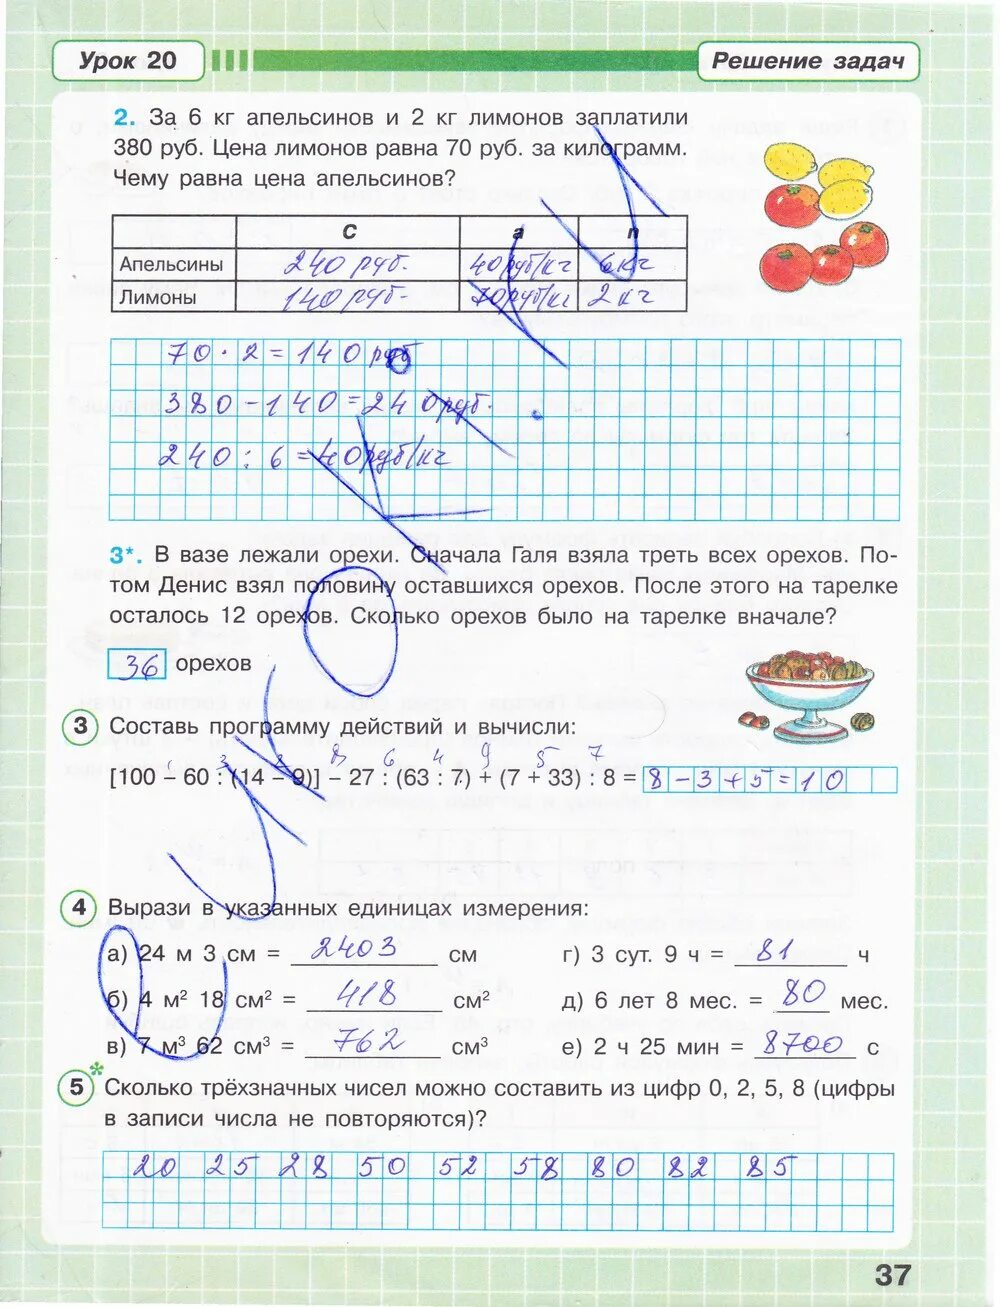 Урок 20
Решение задач
2. За 6 кг апельсинов и 2 кг лимонов заплатили
380 руб. Цена лимонов равна 70 руб. за килограмм.
Чему равна цена апельсинов?
С а n
Апельсины 240 руб. 40 руб/кг 6 кг
Лимоны 140 руб. 70 руб/кг 2 кг
70 · 2 = 140 руб
380 - 140 = 240 руб.
240 : 6 = 40 руб/кг
3*. В вазе лежали орехи. Сначала Галя взяла треть всех орехов. По-
том Денис взял половину оставшихся орехов. После этого на тарелке
осталось 12 орехов. Сколько орехов было на тарелке вначале?
36 орехов
3 Составь программу действий и вычисли:
8 6 4 9 5 7
[100 – 60 : (14 – 9)] – 27 : (63 : 7) + (7 + 33) : 8 = 8 - 3 + 5 = 10
4 Вырази в указанных единицах измерения:
а) 24 м 3 см = 2403 см г) 3 сут. 9 ч = 81 ч
б) 4 м² 18 см² = 418 см² д) 6 лет 8 мес. = 80 мес.
в) 7 м³ 62 см³ = 762 см³ е) 2 ч 25 мин = 8700 с
5* Сколько трёхзначных чисел можно составить из цифр 0, 2, 5, 8 (цифры
в записи числа не повторяются)?
20 25 28 50 52 58 80 82 85
37